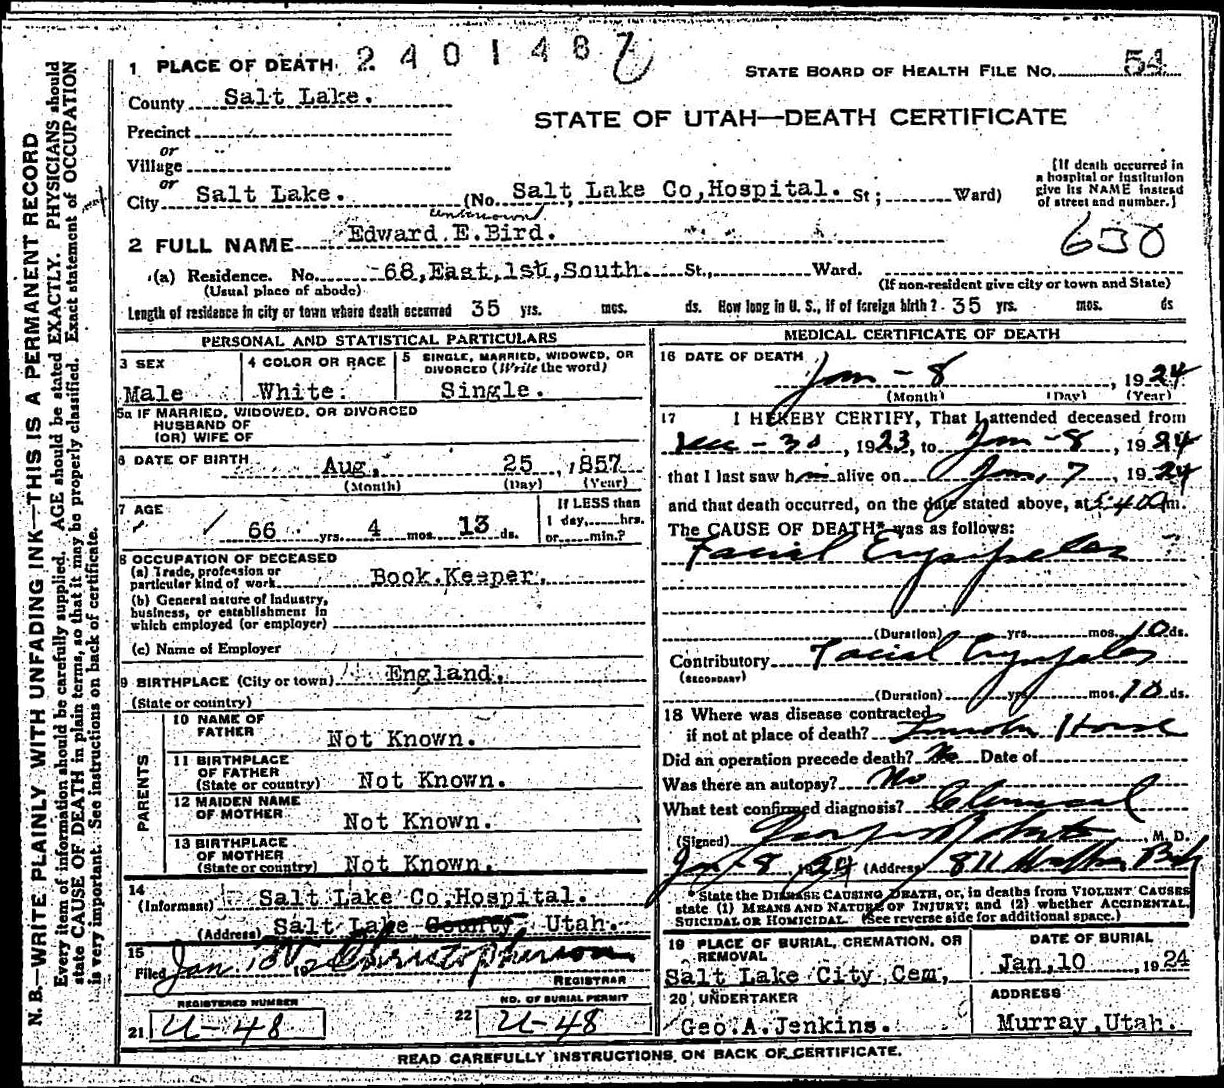 1 PLACE OF DEATH. 2401487
STATE BOARD OF HEALTH FILE NO. 54
County Salt Lake.
STATE OF UTAH—DEATH CERTIFICATE
Precinct
or
Village
or
City Salt Lake. (No. Salt Lake Co, Hospital. St; Ward)
[If death occurred in a hospital or institution give its NAME instead of street and number.]
unknown
2 FULL NAME Edward E. Bird.
650
(a) Residence. No. 68, East, 1st, South. St., Ward.
(Usual place of abode) (If non-resident give city or town and State)
Length of residence in city or town where death occurred 35 yrs. mos. ds. How long in U. S., if of foreign birth? 35 yrs. mos. ds
PERSONAL AND STATISTICAL PARTICULARS
3 SEX Male
4 COLOR OR RACE White.
5 SINGLE, MARRIED, WIDOWED, OR DIVORCED (Write the word) Single.
5a IF MARRIED, WIDOWED, OR DIVORCED
HUSBAND OF
(OR) WIFE OF
6 DATE OF BIRTH Aug, 25, 1857
(Month) (Day) (Year)
7 AGE 66 yrs. 4 mos. 13 ds.
If LESS than
1 day, hrs.
or min.?
8 OCCUPATION OF DECEASED
(a) Trade, profession or
particular kind of work Book.Keeper.
(b) General nature of Industry,
business, or establishment in
which employed (or employer)
(c) Name of Employer
9 BIRTHPLACE (City or town) England.
(State or country)
PARENTS
10 NAME OF
FATHER Not Known.
11 BIRTHPLACE
OF FATHER
(State or country) Not Known.
12 MAIDEN NAME
OF MOTHER Not Known.
13 BIRTHPLACE
OF MOTHER
(State or country) Not Known.
14
(Informant) Salt Lake Co, Hospital.
(Address) Salt Lake County, Utah.
15
Filed Jan. 19 Christopherson
REGISTRAR
REGISTERED NUMBER
21 U-48
NO. OF BURIAL PERMIT
22 U-48
MEDICAL CERTIFICATE OF DEATH
16 DATE OF DEATH
Jan - 8, 1924
(Month) (Day) (Year)
17 I HEREBY CERTIFY, That I attended deceased from
Dec - 30, 1923, to Jan - 8, 1924
that I last saw him alive on Jan, 7, 1924
and that death occurred, on the date stated above, at 5:40 am.
The CAUSE OF DEATH* was as follows:
Facial Erysipelas
(Duration) yrs. mos. 10 ds.
Contributory Facial Erysipelas
(SECONDARY)
(Duration) yrs. mos. 10 ds.
18 Where was disease contracted
if not at place of death? Lincoln House
Did an operation precede death? No Date of
Was there an autopsy? No
What test confirmed diagnosis? Clinical
(Signed) Roberts, M. D.
Jan 8 1924 (Address) 811
*State the DISEASE CAUSING DEATH, or, in deaths from VIOLENT CAUSES
state (1) MEANS AND NATURE OF INJURY; and (2) whether ACCIDENTAL,
SUICIDAL OR HOMICIDAL. (See reverse side for additional space.)
19 PLACE OF BURIAL, CREMATION, OR
REMOVAL
Salt Lake City Cem,
DATE OF BURIAL
Jan, 10, 1924
20 UNDERTAKER
Geo. A. Jenkins.
ADDRESS
Murray, Utah.
READ CAREFULLY INSTRUCTIONS ON BACK OF CERTIFICATE.
N. B.—WRITE PLAINLY WITH UNFADING INK—THIS IS A PERMANENT RECORD
Every item of information should be carefully supplied. AGE should be stated EXACTLY. PHYSICIANS should
state CAUSE OF DEATH in plain terms, so that it may be properly classified. Exact statement of OCCUPATION
is very important. See instructions on back of certificate.